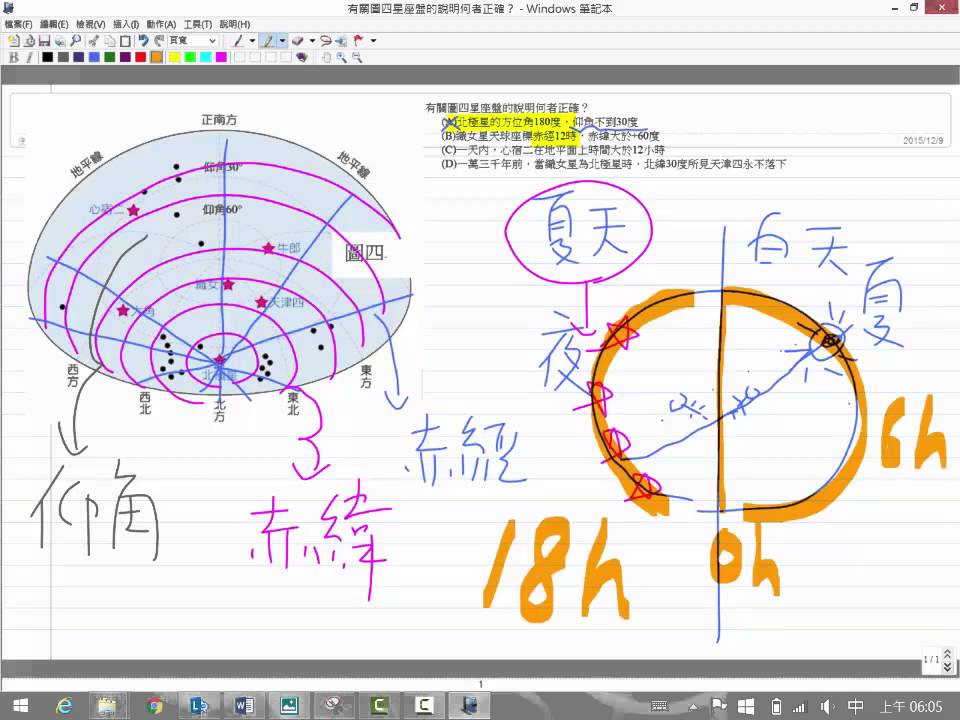 有關圖四星座盤的說明何者正確？ - Windows 筆記本
檔案(F) 編輯(E) 檢視(V) 插入(I) 動作(A) 工具(T) 說明(H)
頁寬
B I
有關圖四星座盤的說明何者正確？
(A)北極星的方位角180度，仰角不到30度
(B)織女星天球座標赤經12時，赤緯大於+60度
(C)一天內，心宿二在地平面上時間大於12小時
(D)一萬三千年前，當織女星為北極星時，北緯30度所見天津四永不落下
2015/12/9
正南方
地平線
地平線
仰角30°
仰角60°
心宿二
牛郎
圖四
織女
天津四
大角
西方
西北
北方
東北
東方
夏天
白天
夏
夜
6h
18h
0h
赤經
仰角
赤緯
1 / 1
1
中
上午 06:05